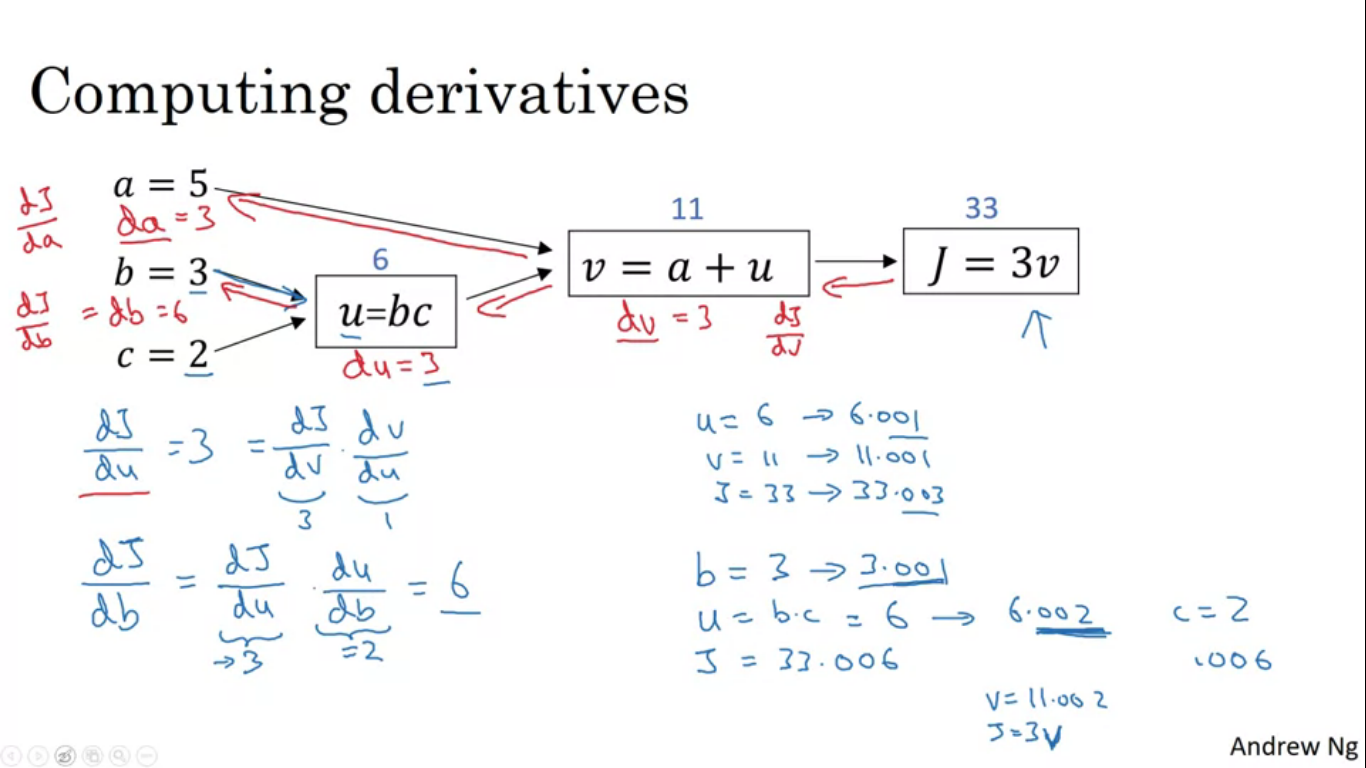 Computing derivatives
a = 5
dJ/da da = 3
b = 3
dJ/db = db = 6
c = 2
6
u=bc
du = 3
11
v = a + u
dv = 3 dJ/dv
33
J = 3v
dJ/du = 3 = dJ/dv · dv/du
3 1
dJ/db = dJ/du · du/db = 6
→3 =2
u = 6 → 6.001
v = 11 → 11.001
J = 33 → 33.003
b = 3 → 3.001
u = b·c = 6 → 6.002 c = 2
J = 33.006 .006
v = 11.002
J = 3v
Andrew Ng